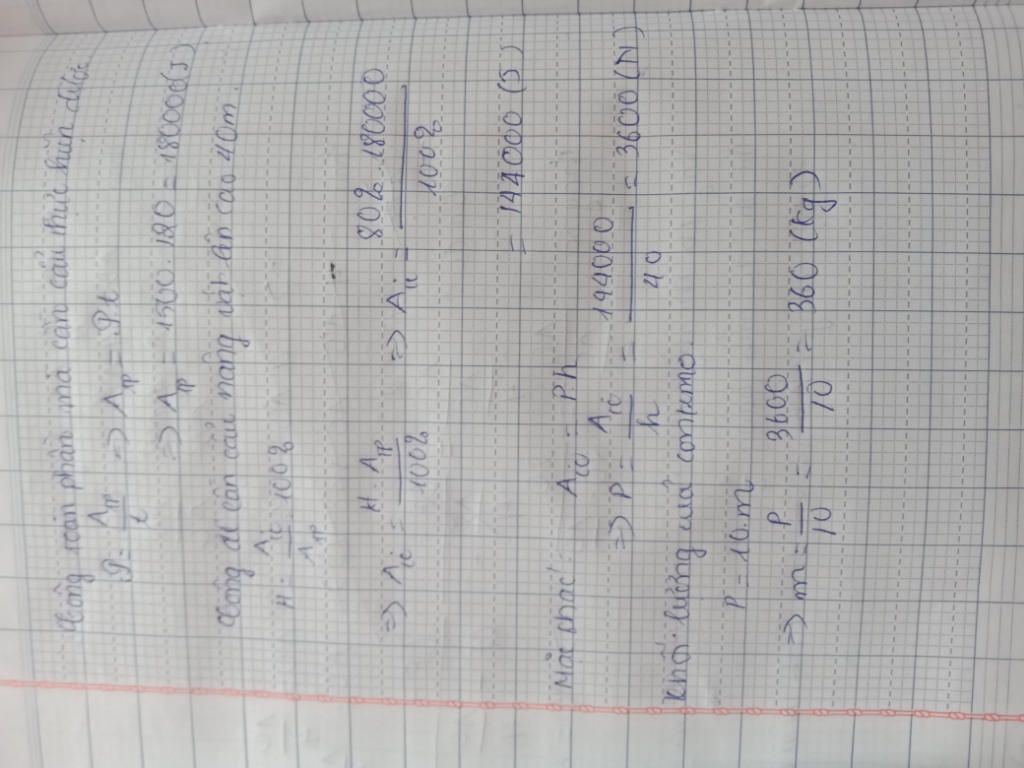 Công toàn phần mà cần cẩu thực hiện được
P = Atp/t => Atp = P.t
=> Atp = 1500.120 = 180000(J)
Công để cần cẩu nâng vật lên cao 40m.
H = Ai/Atp . 100%
=> Ai = H.Atp/100% => Ai = 80%.180000/100%
= 144000 (J)
Mặt khác: Ai = Ph
=> P = Ai/h = 144000/40 = 3600 (N)
Khối lượng của contenno.
P = 10m
=> m = P/10 = 3600/10 = 360 (kg)